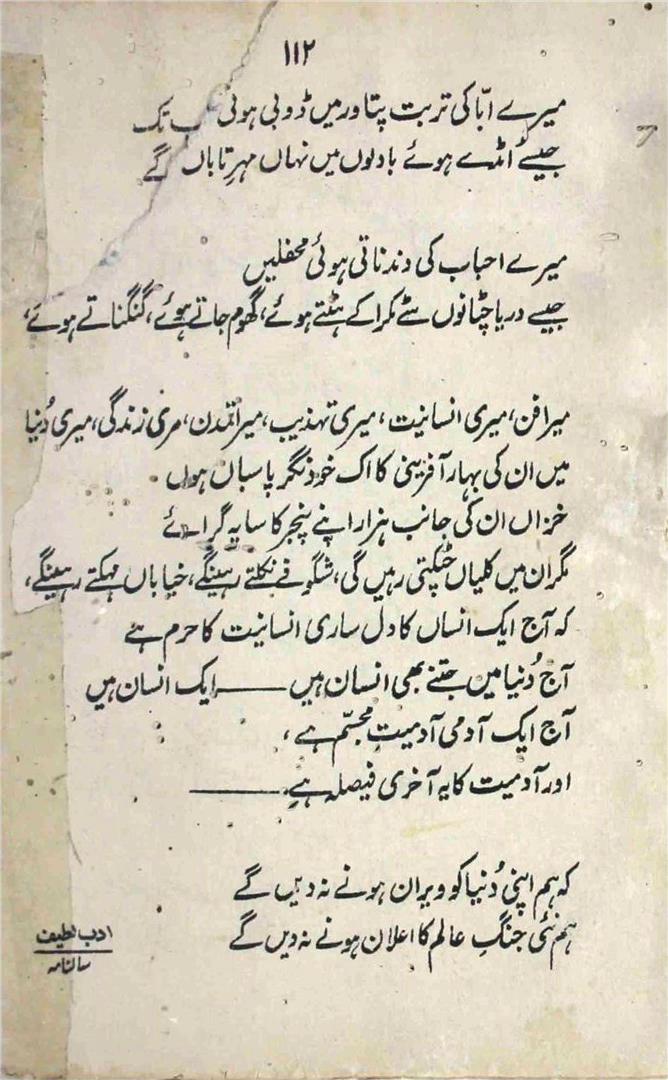 ۱۱۲
میرے ابّا کی تربت پتاور میں ڈوبی ہوئی تک
جیسے اُمڈے ہوئے بادلوں میں نہاں مہرِ تاباں گے
میرے احباب کی دندناتی ہوئی محفلیں
جیسے دریا چٹانوں سے ٹکرا کے ہنستے ہوئے، گھوم جاتے ہوئے، گنگناتے ہوئے،
میرا فن، میری انسانیت، میری تہذیب، میرا تمدن، مری زندگی، میری دُنیا
میں ان کی بہار آفرینی کا اک خود نگر پاسباں ہوں
خزاں ان کی جانب ہزار اپنے پنجر کا سایہ گرائے
مگر ان میں کلیاں چٹکتی رہیں گی، شگوفے نکلتے رہینگے، خیاباں مہکتے رہینگے،
کہ آج ایک انساں کا دل ساری انسانیت کا حرم ہے
آج دُنیا میں جتنے بھی انسان ہیں —— ایک انسان ہیں
آج ایک آدمی آدمیتِ مجسّم ہے،
اور آدمیت کا یہ آخری فیصلہ ہے ——
کہ ہم اپنی دُنیا کو ویران ہونے نہ دیں گے
ہم نئی جنگِ عالم کا اعلان ہونے نہ دیں گے
ادب لطیف
سالنامہ